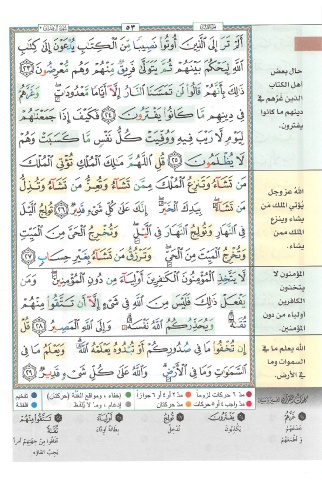 ٥٣
أَلَمْ تَرَ إِلَى الَّذِينَ أُوتُوا نَصِيبًا مِنَ الْكِتَٰبِ يُدْعَوْنَ إِلَىٰ كِتَٰبِ
اللَّهِ لِيَحْكُمَ بَيْنَهُمْ ثُمَّ يَتَوَلَّىٰ فَرِيقٌ مِنْهُمْ وَهُمْ مُعْرِضُونَ ٢٣
ذَٰلِكَ بِأَنَّهُمْ قَالُوا لَنْ تَمَسَّنَا النَّارُ إِلَّا أَيَّامًا مَعْدُودَٰتٍ وَغَرَّهُمْ
فِي دِينِهِمْ مَا كَانُوا يَفْتَرُونَ ٢٤ فَكَيْفَ إِذَا جَمَعْنَٰهُمْ
لِيَوْمٍ لَا رَيْبَ فِيهِ وَوُفِّيَتْ كُلُّ نَفْسٍ مَا كَسَبَتْ وَهُمْ
لَا يُظْلَمُونَ ٢٥ قُلِ اللَّهُمَّ مَٰلِكَ الْمُلْكِ تُؤْتِي الْمُلْكَ
مَنْ تَشَاءُ وَتَنْزِعُ الْمُلْكَ مِمَّنْ تَشَاءُ وَتُعِزُّ مَنْ تَشَاءُ وَتُذِلُّ
مَنْ تَشَاءُ بِيَدِكَ الْخَيْرُ إِنَّكَ عَلَىٰ كُلِّ شَيْءٍ قَدِيرٌ ٢٦ تُولِجُ الَّيْلَ
فِي النَّهَارِ وَتُولِجُ النَّهَارَ فِي الَّيْلِ وَتُخْرِجُ الْحَيَّ مِنَ الْمَيِّتِ
وَتُخْرِجُ الْمَيِّتَ مِنَ الْحَيِّ وَتَرْزُقُ مَنْ تَشَاءُ بِغَيْرِ حِسَابٍ ٢٧
لَا يَتَّخِذِ الْمُؤْمِنُونَ الْكَٰفِرِينَ أَوْلِيَاءَ مِنْ دُونِ الْمُؤْمِنِينَ وَمَنْ
يَفْعَلْ ذَٰلِكَ فَلَيْسَ مِنَ اللَّهِ فِي شَيْءٍ إِلَّا أَنْ تَتَّقُوا مِنْهُمْ
تُقَىٰةً وَيُحَذِّرُكُمُ اللَّهُ نَفْسَهُ وَإِلَى اللَّهِ الْمَصِيرُ ٢٨ قُلْ
إِنْ تُخْفُوا مَا فِي صُدُورِكُمْ أَوْ تُبْدُوهُ يَعْلَمْهُ اللَّهُ وَيَعْلَمُ مَا فِي
السَّمَٰوَٰتِ وَمَا فِي الْأَرْضِ وَاللَّهُ عَلَىٰ كُلِّ شَيْءٍ قَدِيرٌ ٢٩
حال بعض
أهل الكتاب
الذين غرّهم في
دينهم ما كانوا
يفترون.
الله عز وجل
يُؤتي الملك مَن
يشاء وينزع
الملك ممن
يشاء.
المؤمنون لا
يتخذون
الكافرين
أولياء من دون
المؤمنين.
الله يعلم ما في
السموات وما
في الأرض.
مدّ ٦ حركات لزوماً
مدّ ٢ أو ٤ أو ٦ جوازاً
إخفاء، ومواقع الغُنَّة (حركتان)
تفخيم
مدّ واجب ٤ أو ٥ حركات
مدّ حركتان
إدغام، وما لا يُلفظ
قلقلة
غَرَّهُمْ
يَفْتَرُونَ
تُولِجُ
أَوْلِيَاءَ
تَتَّقُوا مِنْهُمْ
تُقَىٰةً